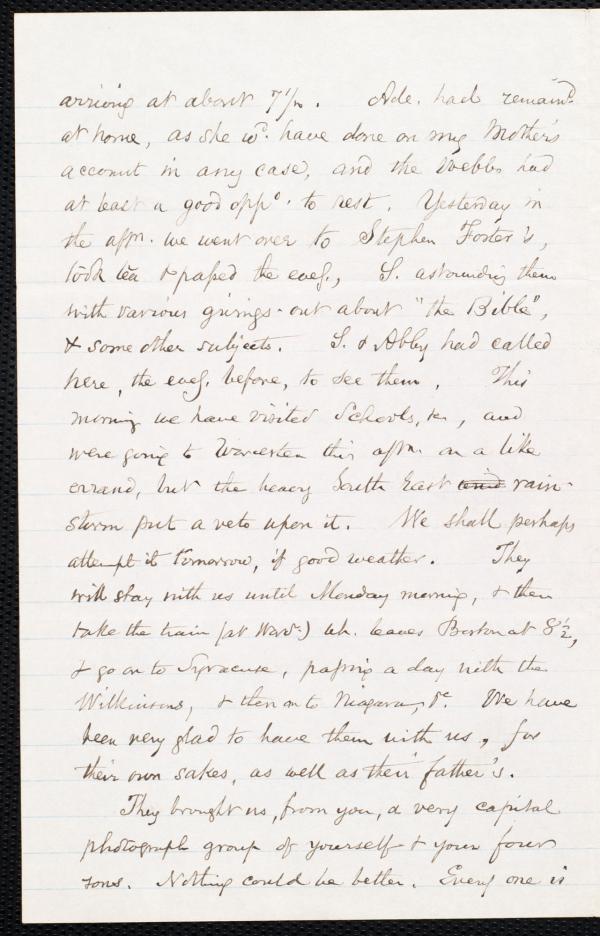 arriving at about 7½. Ade. had remain'd
at home, as she wd. have done on my Mother's
account in any case, and the Webbs had
at least a good oppy. to rest. Yesterday in
the aftn. we went over to Stephen Foster's,
took tea & passed the eveg., S. astounding them
with various givings-out about "the Bible",
& some other subjects. S. & Abby had called
here, the eveg. before, to see them. This
morning we have visited Schools, &c, and
were going to Worcester this aftn. on a like
errand, but the heavy South East wind rain-
storm put a veto upon it. We shall perhaps
attempt it tomorrow, if good weather. They
will stay with us until Monday morning, & then
take the train (at Worcr.) wh. leaves Boston at 8½,
& go on to Syracuse, passing a day with the
Wilkinsons, & then on to Niagara, &c. We have
been very glad to have them with us, for
their own sakes, as well as their father's.
They brought us, from you, a very capital
photograph group of yourself & your four
sons. Nothing could be better. Every one is